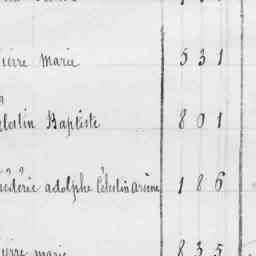 ierre Marie 531
élestin Baptiste 801
rédéric adolphe Célestin arsène 186
ierre marie 835